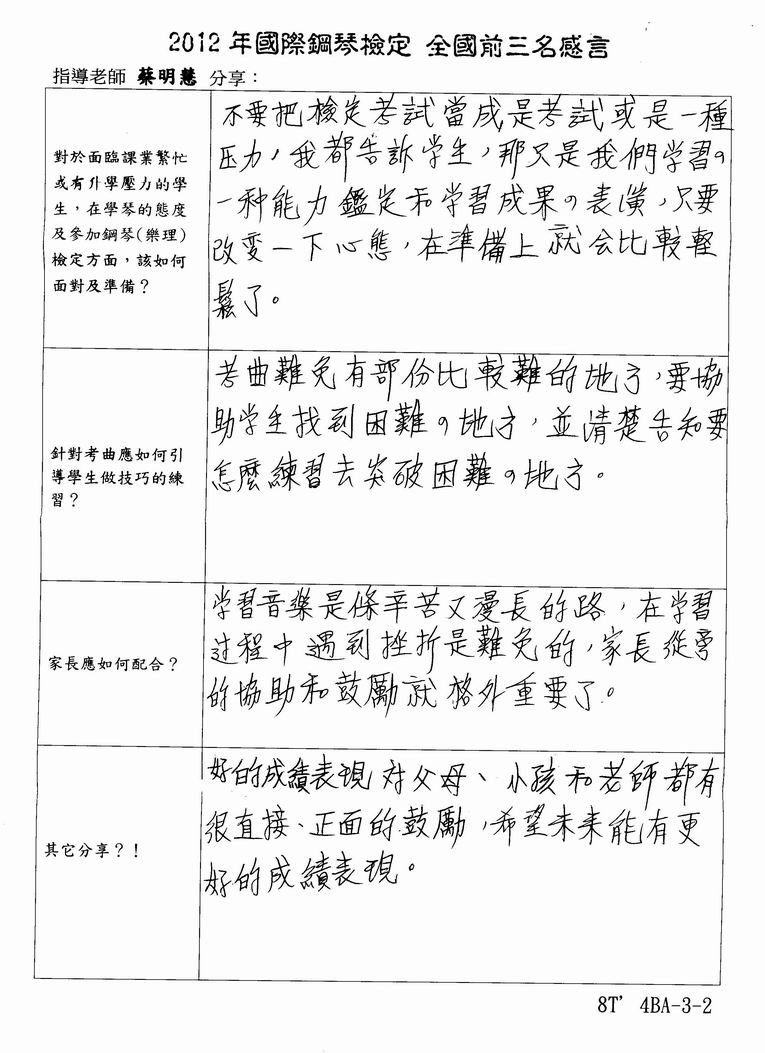 2012 年國際鋼琴檢定 全國前三名感言
指導老師 蔡明慧 分享：
對於面臨課業繁忙
或有升學壓力的學
生，在學琴的態度
及參加鋼琴(樂理)
檢定方面，該如何
面對及準備？
不要把檢定考試當成是考試或是一種
压力，我都告訴学生，那只是我們学習の
一种能力鑑定和学習成果の表演，只要
改变一下心態，在準備上就会比較輕
鬆了。
針對考曲應如何引
導學生做技巧的練
習？
考曲難免有部份比較難的地方，要協
助学生找到困難の地方，並清楚告知要
怎麼練習去突破困難の地方。
家長應如何配合？
学習音樂是條辛苦又漫長的路，在学習
过程中遇到挫折是難免的，家長從旁
的協助和鼓勵就格外重要了。
其它分享？！
好的成績表現对父母、小孩和老師都有
很直接、正面的鼓勵，希望未來能有更
好的成績表現。
8T' 4BA-3-2